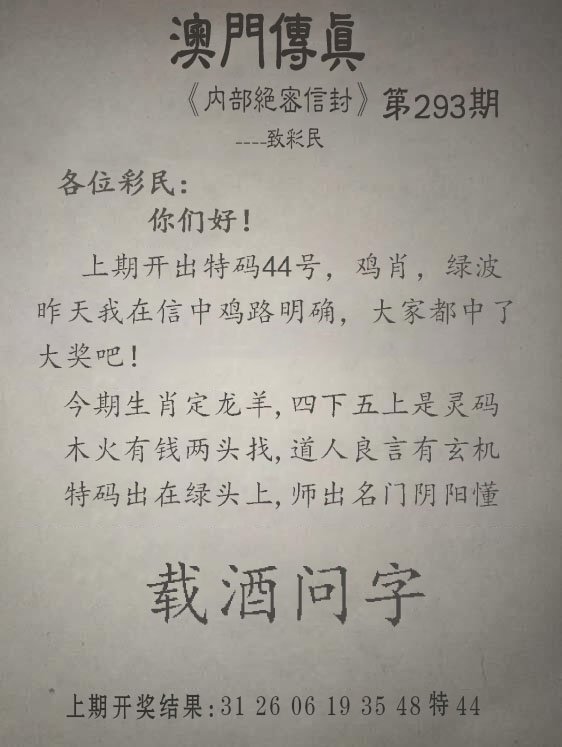 澳門傳眞
《内部絕密信封》第293期
----致彩民
各位彩民：
你们好！
上期开出特码44号，鸡肖，绿波
昨天我在信中鸡路明确，大家都中了
大奖吧！
今期生肖定龙羊,四下五上是灵码
木火有钱两头找,道人良言有玄机
特码出在绿头上,师出名门阴阳懂
载酒问字
上期开奖结果:31 26 06 19 35 48 特 44